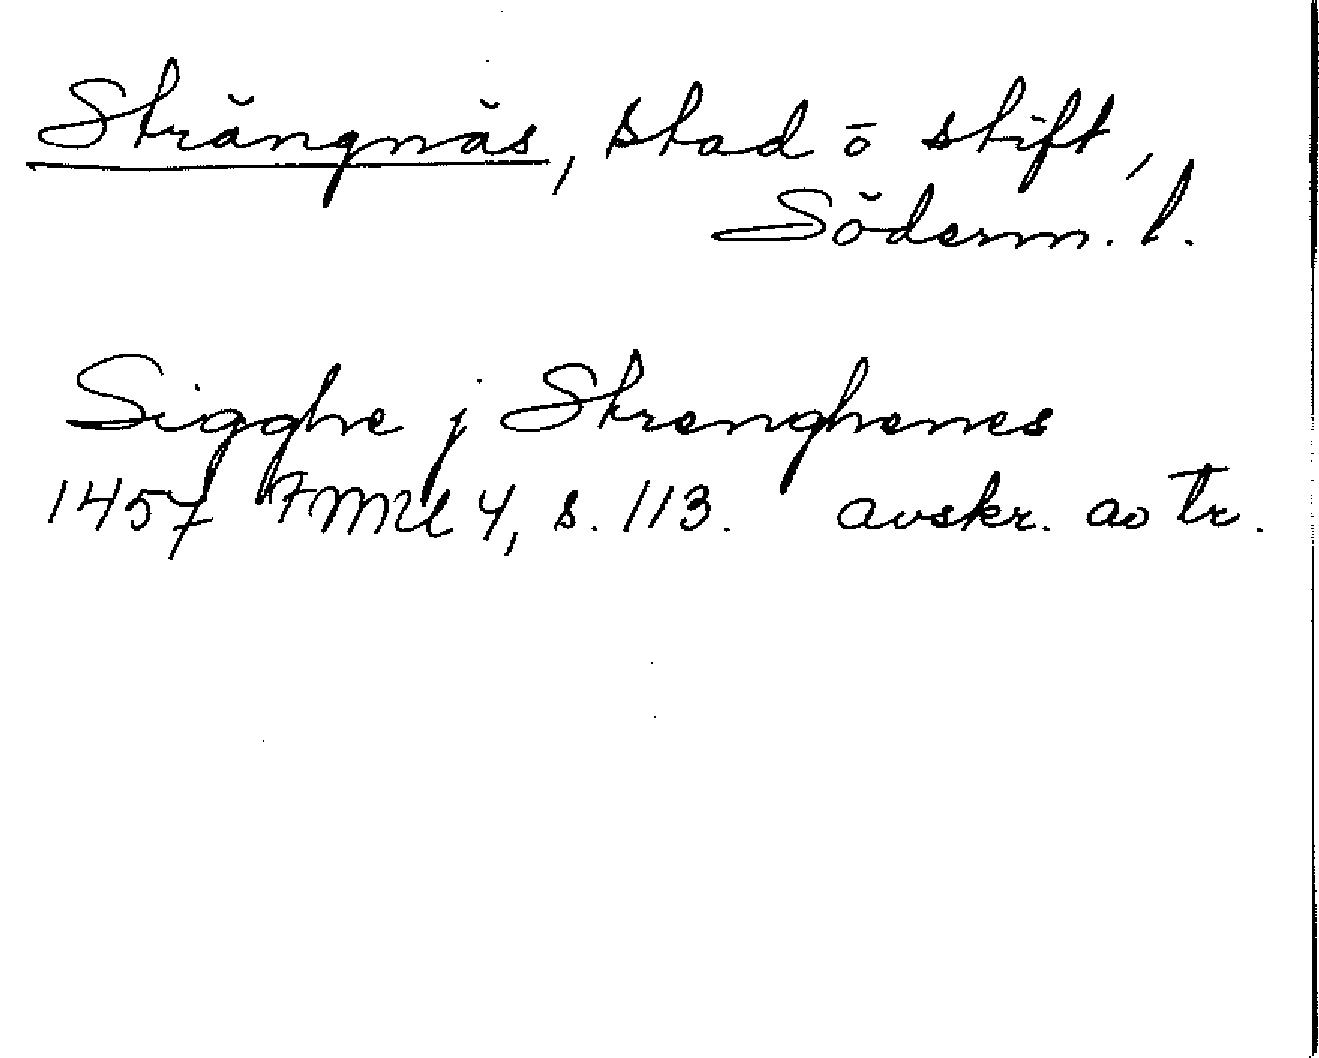 Strängnäs, stad ō stift,
Söderm. l.
Sigghe j Strenghenes
1457 FMU 4, s. 113. avskr. av tr.